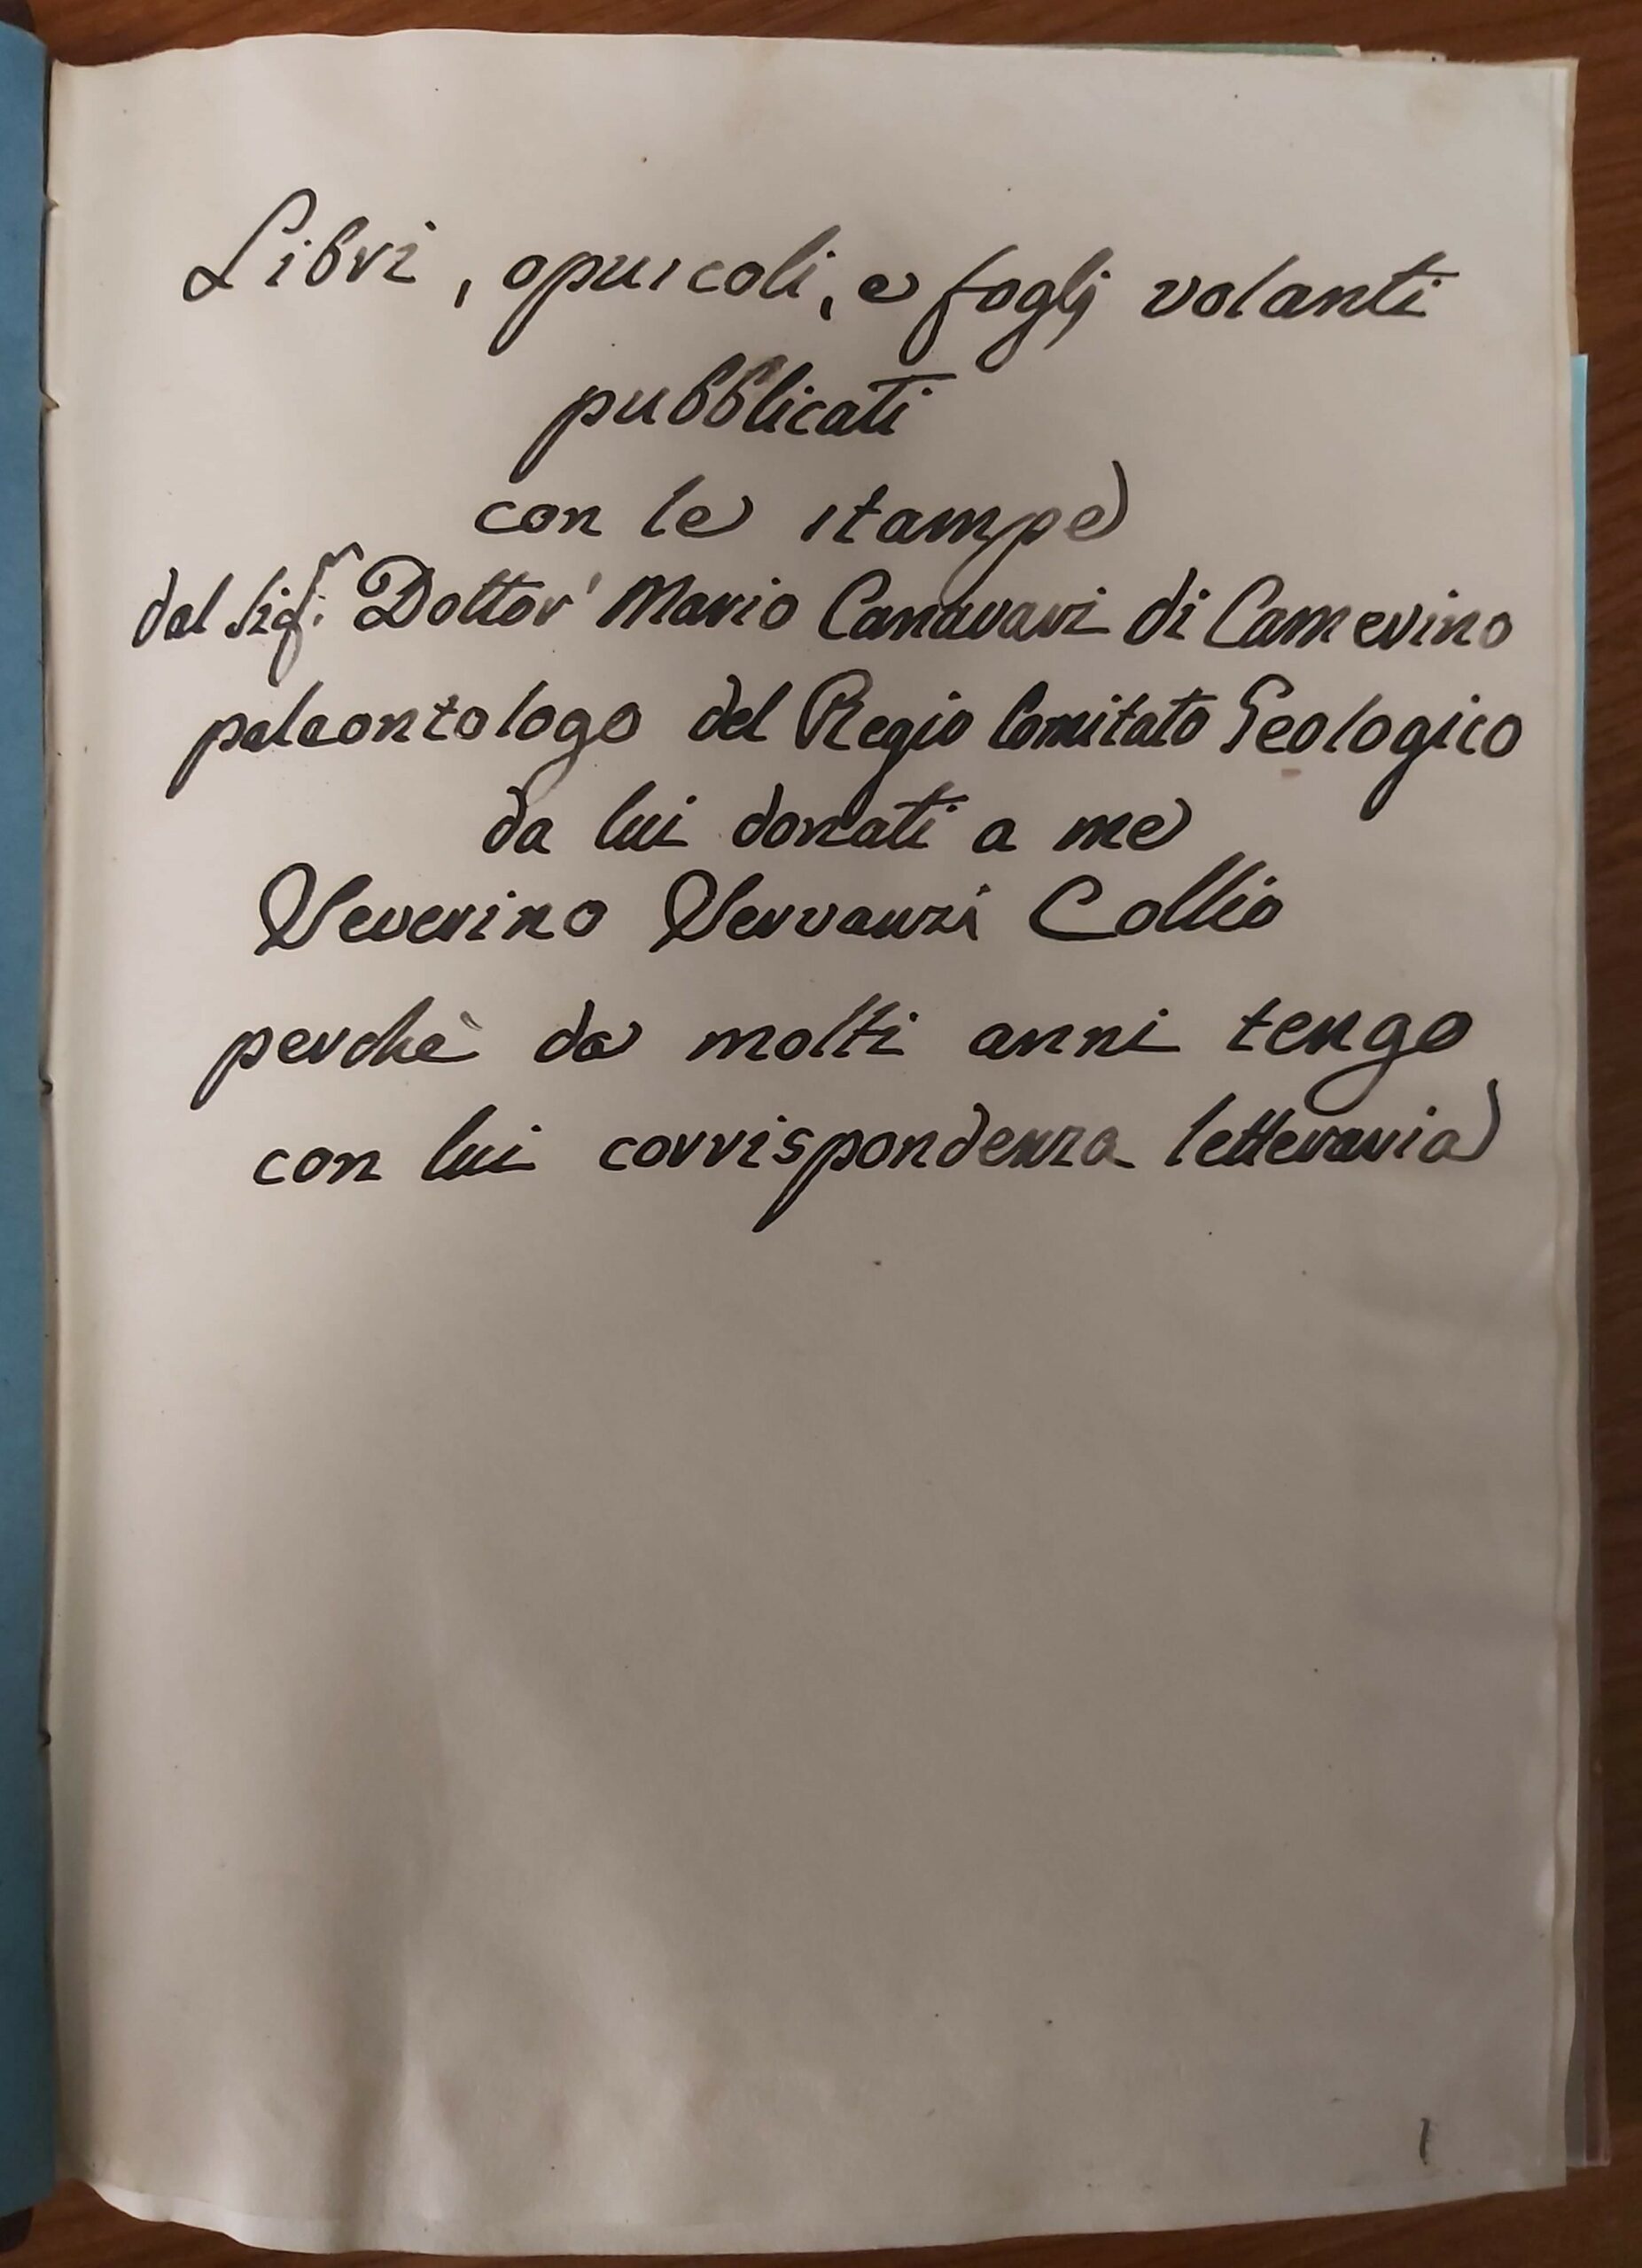 Libri, opuscoli, e foglj volanti
pubblicati
con le stampe
dal Sig.r Dottor' Mario Canavari di Camerino
paleontologo del Regio Comitato Geologico
da lui donati a me
Severino Servanzi Collio
perchè da molti anni tengo
con lui corrispondenza letteraria
1